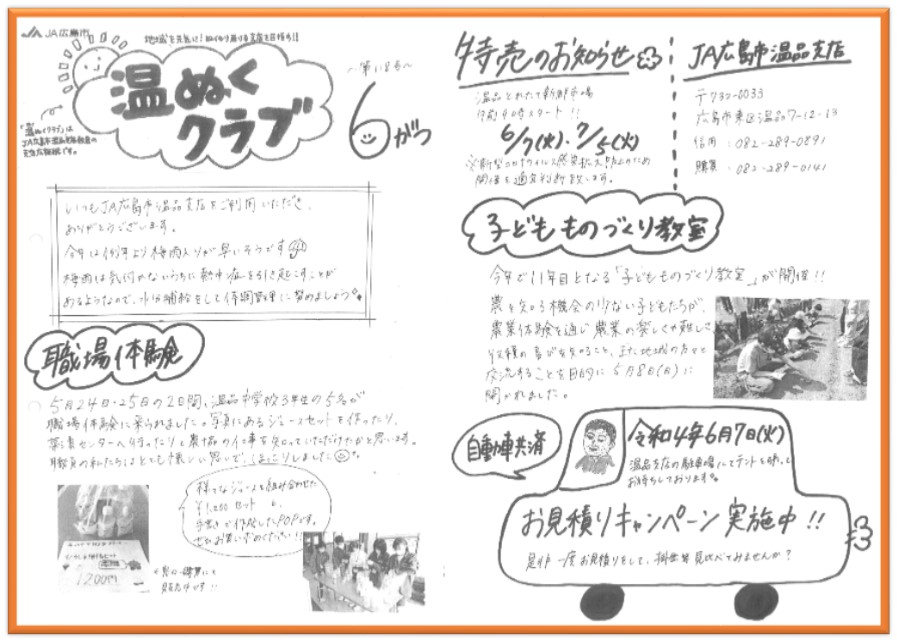 JA広島市
地域を元気に!ぬくもり届ける支店を目指す!!
温ぬく
クラブ
「温ぬくクラブ」は
JA広島市温品支店
支店広報紙です。
6がつ
いつもJA広島市温品支店をご利用いただき、
ありがとうございます。
今年は例年より梅雨入りが早いそうです
梅雨は気付かないうちに熱中症を引き起こすことが
あるようなので、水分補給をして体調管理に努めましょう。
職場体験
5月24日・25日の2日間、温品中学校3年生の5名が
職場体験に来られました。写真にあるジュースセットを作ったり、
センターへ行ったりと農協の仕事を知っていただけたかと思います。
職員の私たちはとても懐しい思いで、ほっこりしました。
様々なジュースを組み合わせた
¥1,200セットと、
手書きで作成したPOPです。
ぜひお買い求めください!!
1200円
販売中です!!
特売のお知らせ
温品とれたて新鮮市場
午前9時スタート!!
6/7(火)・7/5(火)
※新型コロナウイルス感染拡大防止のため
開催を適宜判断致します。
JA広島市温品支店
〒732-0033
広島市東区温品7-12-13
信用:082-289-0891
購買:082-289-0141
子どもものづくり教室
今年で11年目となる「子どもものづくり教室」が開催!!
農を知る機会の少ない子どもたちが、
農業体験を通じ農業の楽しさや難しさ
収穫の喜びを知ること、また地域の方々と
交流することを目的に5月8日(日)に
開かれました。
自動車共済
令和4年6月7日(火)
温品支店の駐車場にてテントを張って
お待ちしております。
お見積りキャンペーン実施中!!
是非一度お見積りをして、掛金を見比べてみませんか?